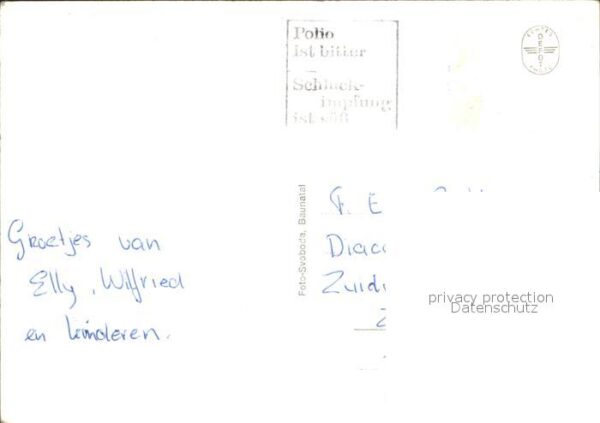 Polio
ist bitter
Schluck-
impfung
ist süß
Foto-Svoboda, Baunatal
Groetjes van
Elly, Wilfried
en kinderen.
F. E
Diac
Zuid
privacy protection
Datenschutz